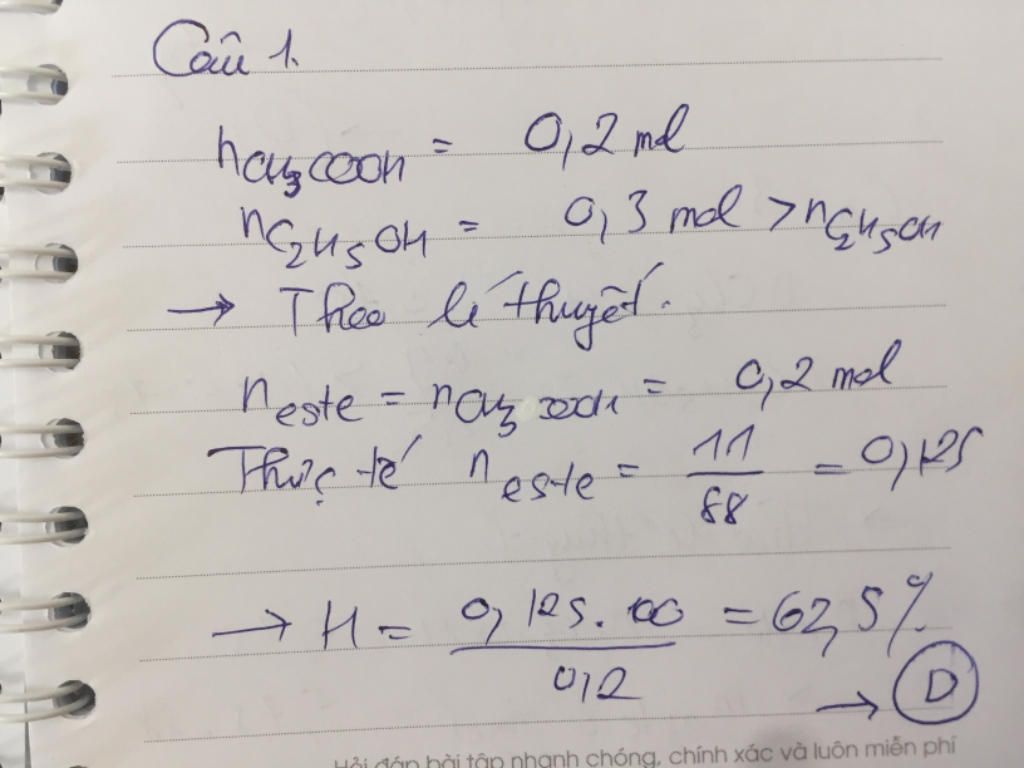 Câu 1.
nCH3COOH = 0,2 mol
nC2H5OH = 0,3 mol > nC2H5OH
→ Theo lí thuyết.
neste = nCH3COOH = 0,2 mol
Thực tế neste = 11/88 = 0,125
→ H = 0,125.100/0,2 = 62,5%
→ D
Hỏi đáp bài tập nhanh chóng, chính xác và luôn miễn phí